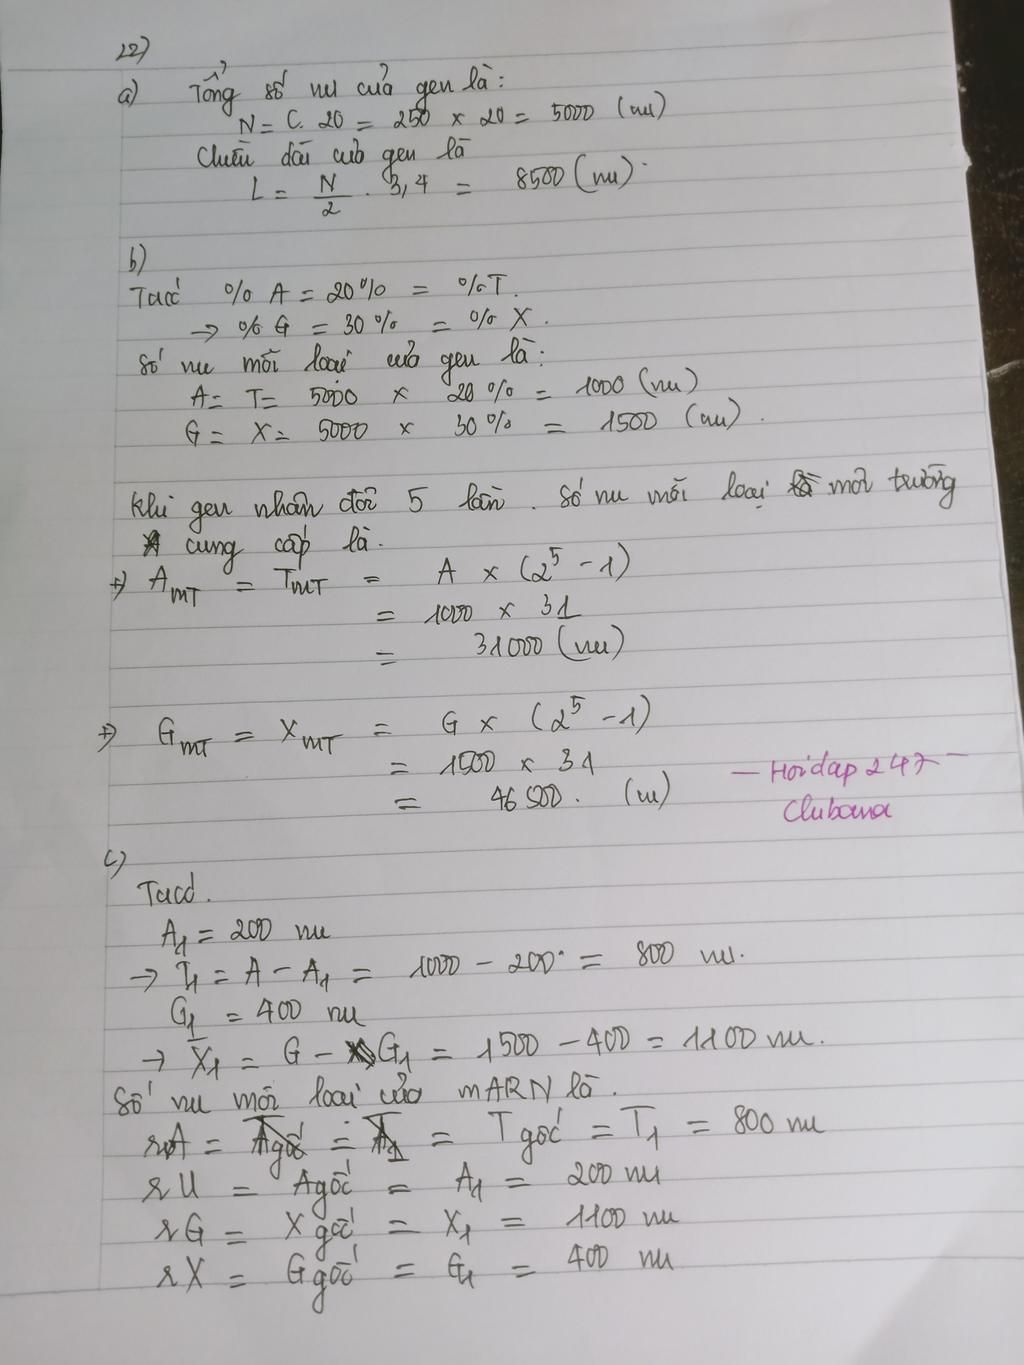 22)
a) Tổng số nu của gen là:
N = C. 20 = 250 x 20 = 5000 (nu)
Chiều dài của gen là
L = N/2 . 3,4 = 8500 (nu)
b)
Ta có % A = 20% = % T.
→ % G = 30% = % X.
Số nu mỗi loại của gen là:
A = T = 5000 x 20% = 1000 (nu)
G = X = 5000 x 30% = 1500 (nu).
Khi gen nhân đôi 5 lần. Số nu mỗi loại môi trường
cung cấp là.
+) A MT = T MT = A x (2^5 - 1)
= 1000 x 31
= 31000 (nu)
+) G MT = X MT = G x (2^5 - 1)
= 1500 x 31
= 46500. (nu)
— Hoidap 247 —
Clubana
c)
Ta có.
A1 = 200 nu
→ T1 = A - A1 = 1000 - 200 = 800 nu.
G1 = 400 nu
→ X1 = G - G1 = 1500 - 400 = 1100 nu.
Số nu mỗi loại của mARN là.
rA = T gốc = T1 = 800 nu
rU = A gốc = A1 = 200 nu
rG = X gốc = X1 = 1100 nu
rX = G gốc = G1 = 400 nu